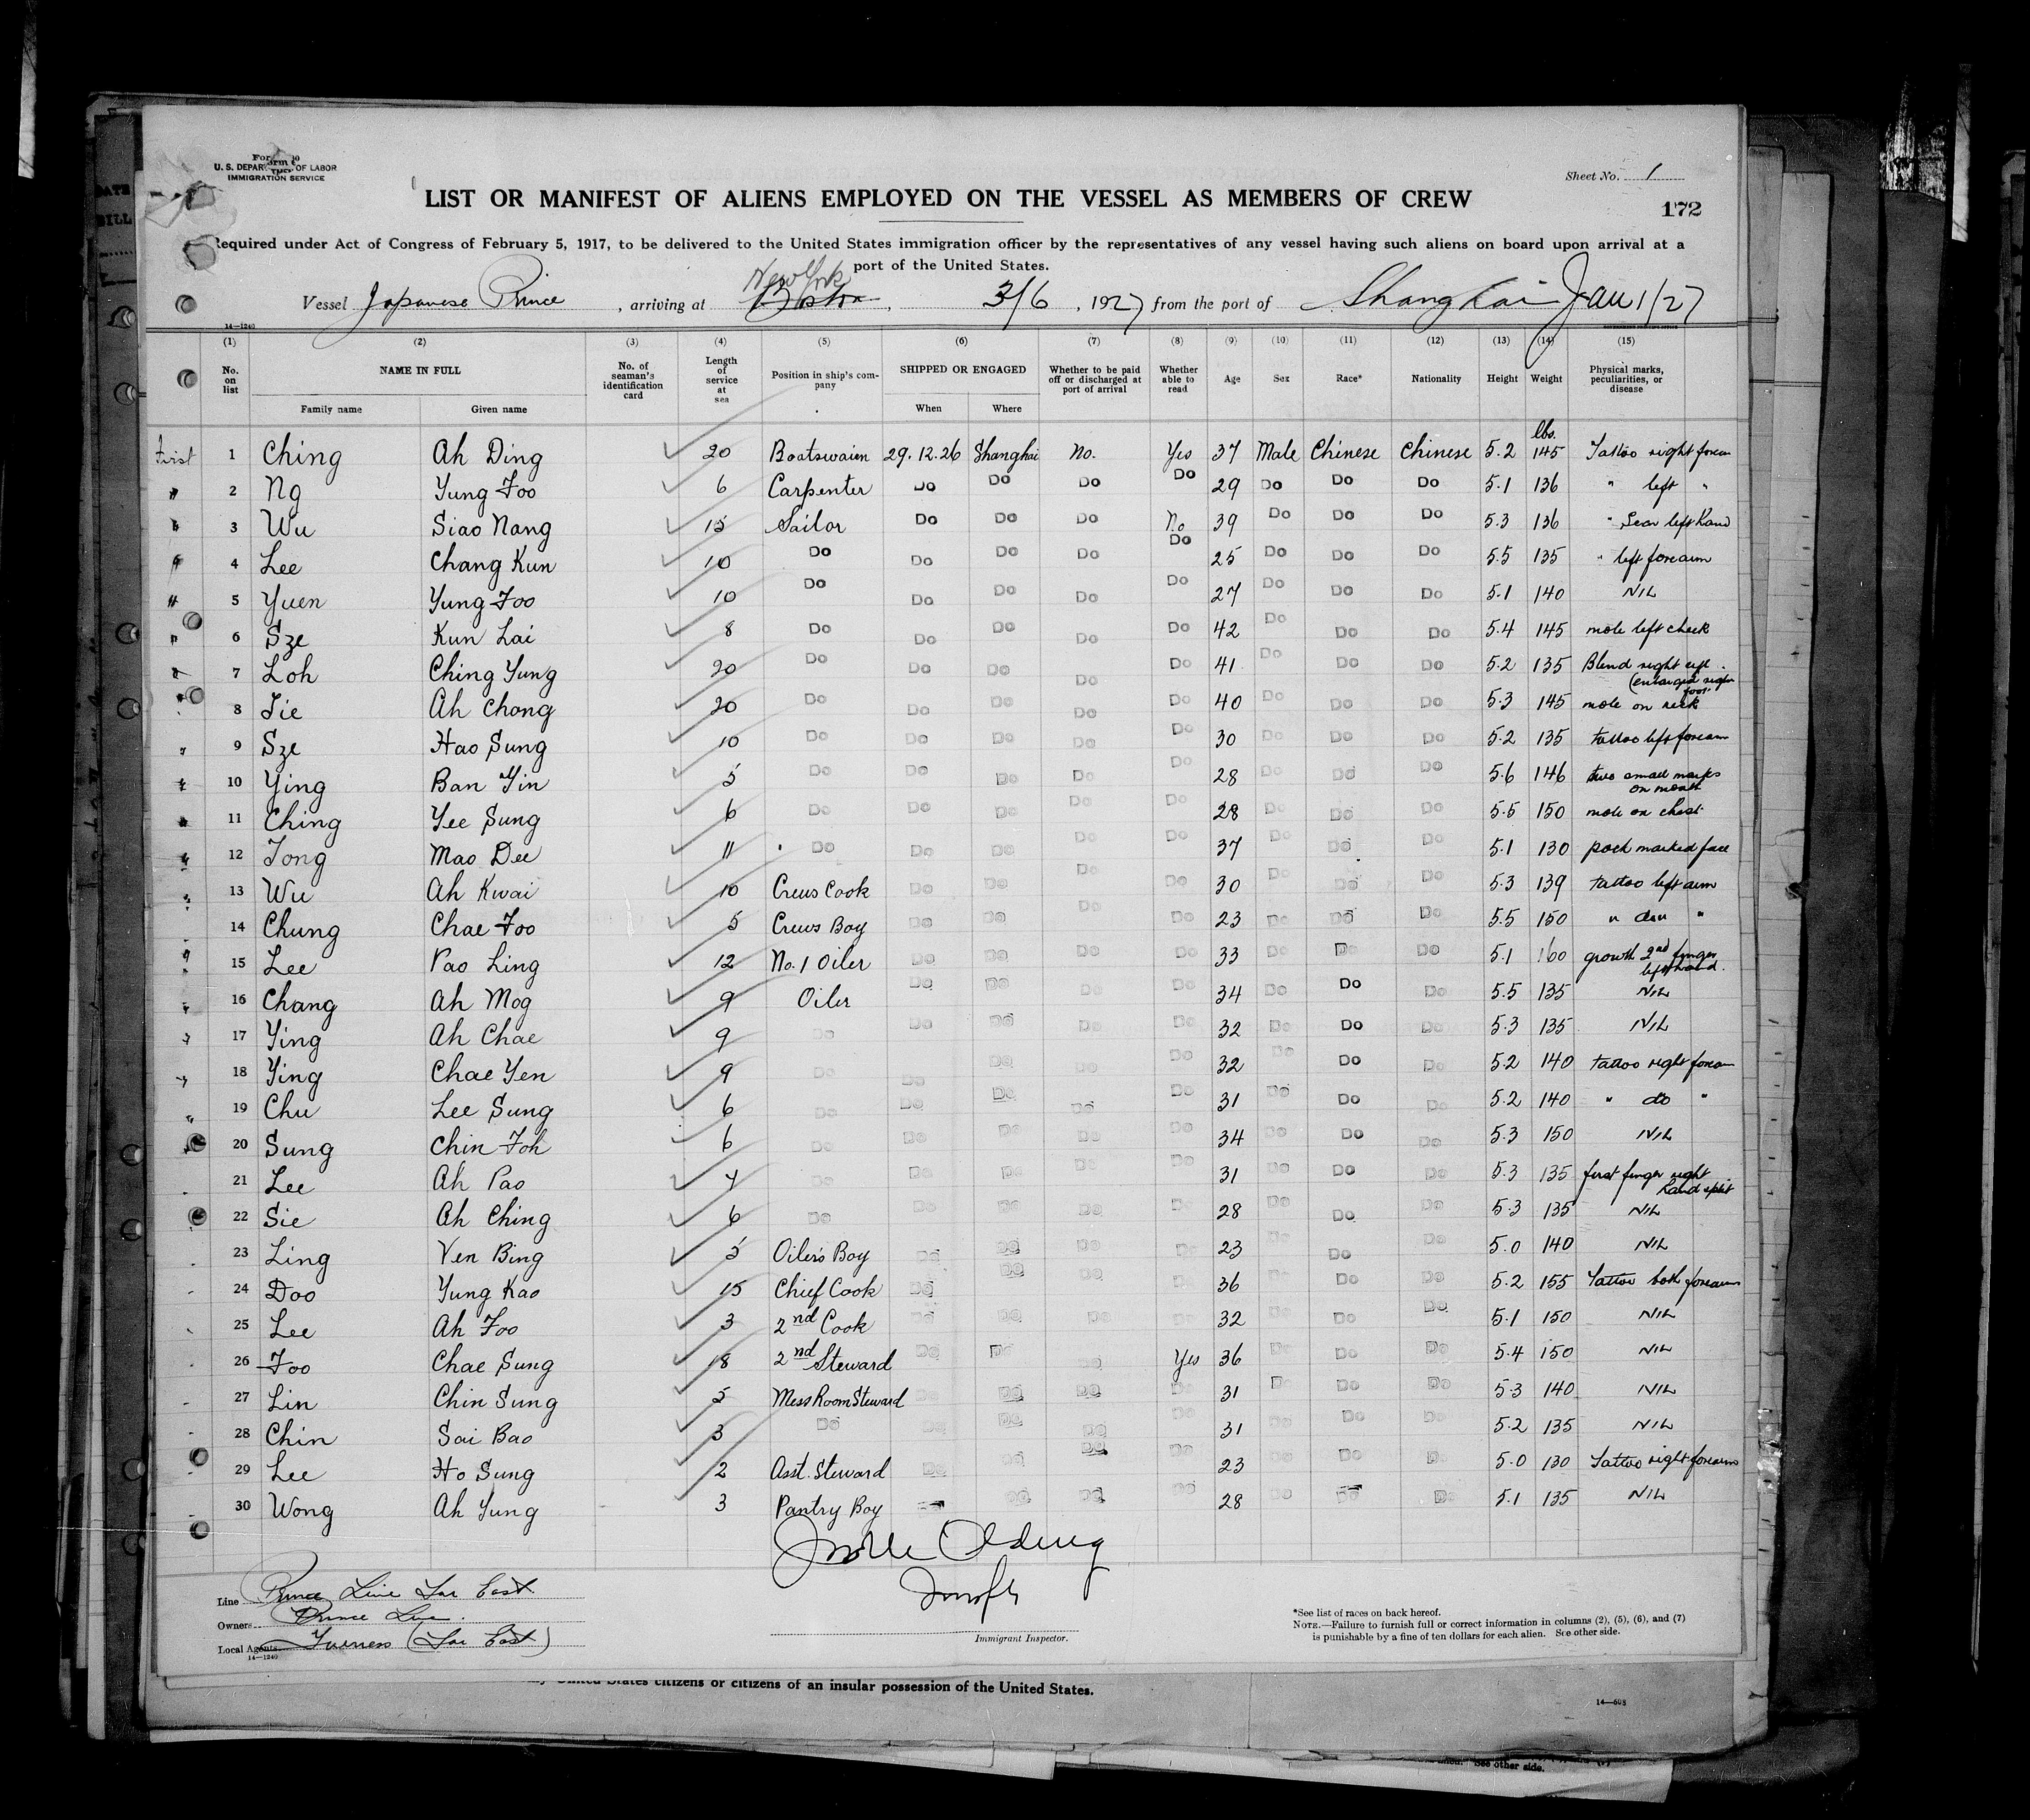 U. S. DEPARTMENT OF LABOR
IMMIGRATION SERVICE
Sheet No. 1
LIST OR MANIFEST OF ALIENS EMPLOYED ON THE VESSEL AS MEMBERS OF CREW
172
Required under Act of Congress of February 5, 1917, to be delivered to the United States immigration officer by the representatives of any vessel having such aliens on board upon arrival at a
port of the United States.
New York
Vessel Japanese Prince, arriving at Boston, 3/6, 1927 from the port of Shanghai Jan 1/27
14—1240
(1) (2) (3) (4) (5) (6) (7) (8) (9) (10) (11) (12) (13) (14) (15)
No. on list NAME IN FULL No. of seaman's identification card Length of service at sea Position in ship's company SHIPPED OR ENGAGED Whether to be paid off or discharged at port of arrival Whether able to read Age Sex Race* Nationality Height Weight Physical marks, peculiarities, or disease
Family name Given name When Where
lbs.
First 1 Ching Ah Ding 20 Boatswaien 29.12.26 Shanghai No. Yes 37 Male Chinese Chinese 5.2 145 Tattoo right forearm
" 2 Ng Yung Foo 6 Carpenter Do Do Do Do 29 Do Do Do 5.1 136 " left "
" 3 Wu Siao Nang 15 Sailor Do Do Do No 39 Do Do Do 5.3 136 " Scar left hand
4 Lee Chang Kun 10 Do Do Do Do Do 25 Do Do Do 5.5 135 " left forearm
" 5 Yuen Yung Foo 10 Do Do Do Do Do 27 Do Do Do 5.1 140 NIL
" 6 Sze Kun Lai 8 Do Do Do Do Do 42 Do Do Do 5.4 145 mole left cheek
7 Loh Ching Yung 20 Do Do Do Do Do 41 Do Do Do 5.2 135 Blind right eye
(enlarged right foot
8 Tie Ah Chong 20 Do Do Do Do Do 40 Do Do Do 5.3 145 mole on neck
" 9 Sze Hao Sung 10 Do Do Do Do Do 30 Do Do Do 5.2 135 tattoo left forearm
10 Ying Ban Yin 5 Do Do Do Do Do 28 Do Do Do 5.6 146 two small marks
on mouth
11 Ching Yee Sung 6 Do Do Do Do Do 28 Do Do Do 5.5 150 mole on chest
12 Tong Mao Dee 11 Do Do Do Do Do 37 Do Do Do 5.1 130 pock marked face
13 Wu Ah Kwai 10 Crews Cook Do Do Do Do 30 Do Do Do 5.3 139 tattoo left arm
14 Chung Chae Foo 5 Crews Boy Do Do Do Do 23 Do Do Do 5.5 150 " "
15 Lee Pao Ling 12 No. 1 Oiler Do Do Do Do 33 Do Do Do 5.1 160 growth 2nd finger
left hand.
16 Chang Ah Mog 9 Oiler Do Do Do Do 34 Do Do Do 5.5 135 NIL
17 Ying Ah Chae 9 Do Do Do Do Do 32 Do Do Do 5.3 135 NIL
18 Ying Chae Yen 9 Do Do Do Do Do 32 Do Do Do 5.2 140 tattoo right forearm
19 Chu Lee Sung 6 Do Do Do Do Do 31 Do Do Do 5.2 140 " do "
20 Sung Chin Foh 6 Do Do Do Do Do 34 Do Do Do 5.3 150 NIL
21 Lee Ah Pao 4 Do Do Do Do Do 31 Do Do Do 5.3 135 first finger right
hand split
22 Sie Ah Ching 6 Do Do Do Do Do 28 Do Do Do 5.3 135 NIL
23 Ling Ven Bing 5 Oiler's Boy Do Do Do Do 23 Do Do Do 5.0 140 NIL
24 Doo Yung Kao 15 Chief Cook Do Do Do 36 Do Do Do 5.2 155 Tattoo both forearms
25 Lee Ah Foo 3 2nd Cook Do Do Do 32 Do Do Do 5.1 150 NIL
26 Foo Chae Sung 18 2nd Steward Do Do Do Yes 36 Do Do Do 5.4 150 NIL
27 Lin Chin Sung 5 Mess Room Steward Do Do Do Do 31 Do Do Do 5.3 140 NIL
28 Chin Sai Bao 3 Do Do Do Do Do 31 Do Do Do 5.2 135 NIL
29 Lee Ho Sung 2 Asst. Steward Do Do Do Do 23 Do Do Do 5.0 130 Tattoo right forearm
30 Wong Ah Yung 3 Pantry Boy Do Do Do 28 Do Do Do 5.1 135 NIL
Line Prince Line Far East
Owners Prince Line.
Local Agents Furness (Far East)
14—1240
Immigrant Inspector.
*See list of races on back hereof.
NOTE.—Failure to furnish full or correct information in columns (2), (5), (6), and (7)
is punishable by a fine of ten dollars for each alien. See other side.
United States citizens or citizens of an insular possession of the United States.
14—608
See other side.